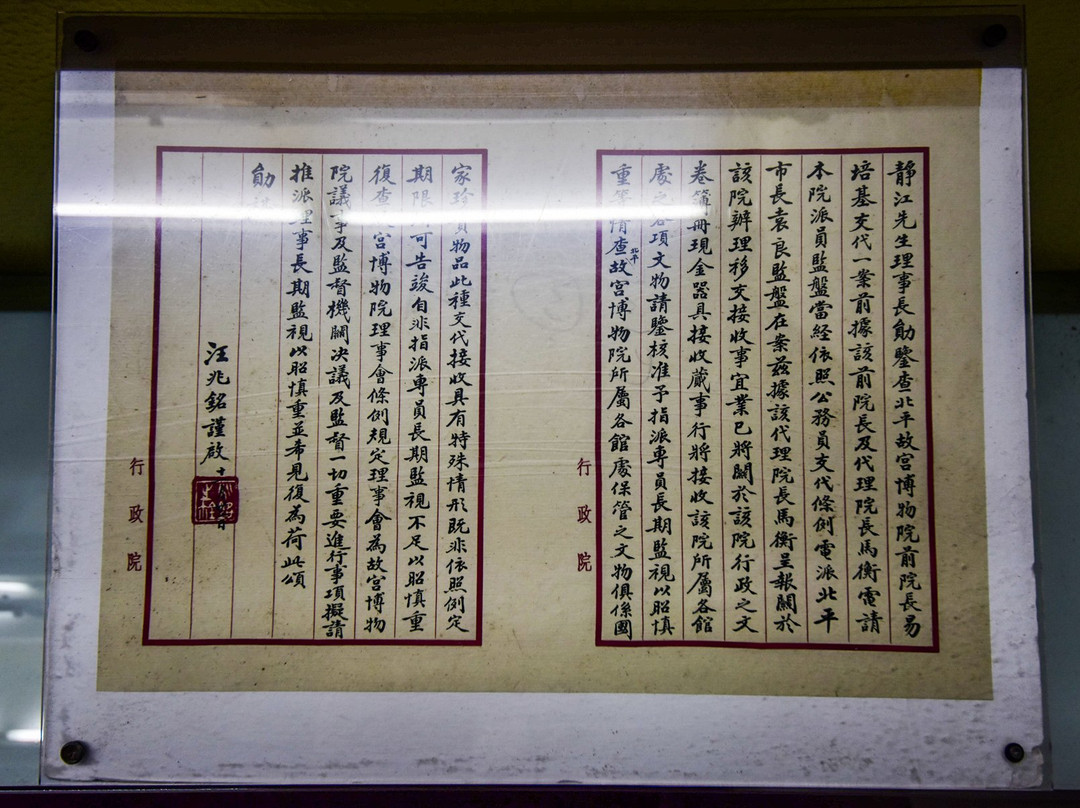 靜江先生理事長勛鑒查北平故宮博物院前院長易
培基交代一案前據該前院長及代理院長馬衡電請
本院派員監盤當經依照公務員交代條例電派北平
市長袁良監盤在案茲據該代理院長馬衡呈報關於
該院辦理移交接收事宜業已將關於該院行政之文
卷簿冊現金器具接收蕆事行將接收該院所屬各館
處之各項文物請鑒核准予指派專員長期監視以昭慎
重等情查北平故宮博物院所屬各館處保管之文物俱係國
行政院
家珍貴物品此種交代接收具有特殊情形既非依照例定
期限可告竣自非指派專員長期監視不足以昭慎重
復查宮博物院理事會條例規定理事會為故宮博物
院議事及監督機關決議及監督一切重要進行事項擬請
推派理事長期監視以昭慎重並希見復為荷此頌
勛祺
汪兆銘謹啟
行政院